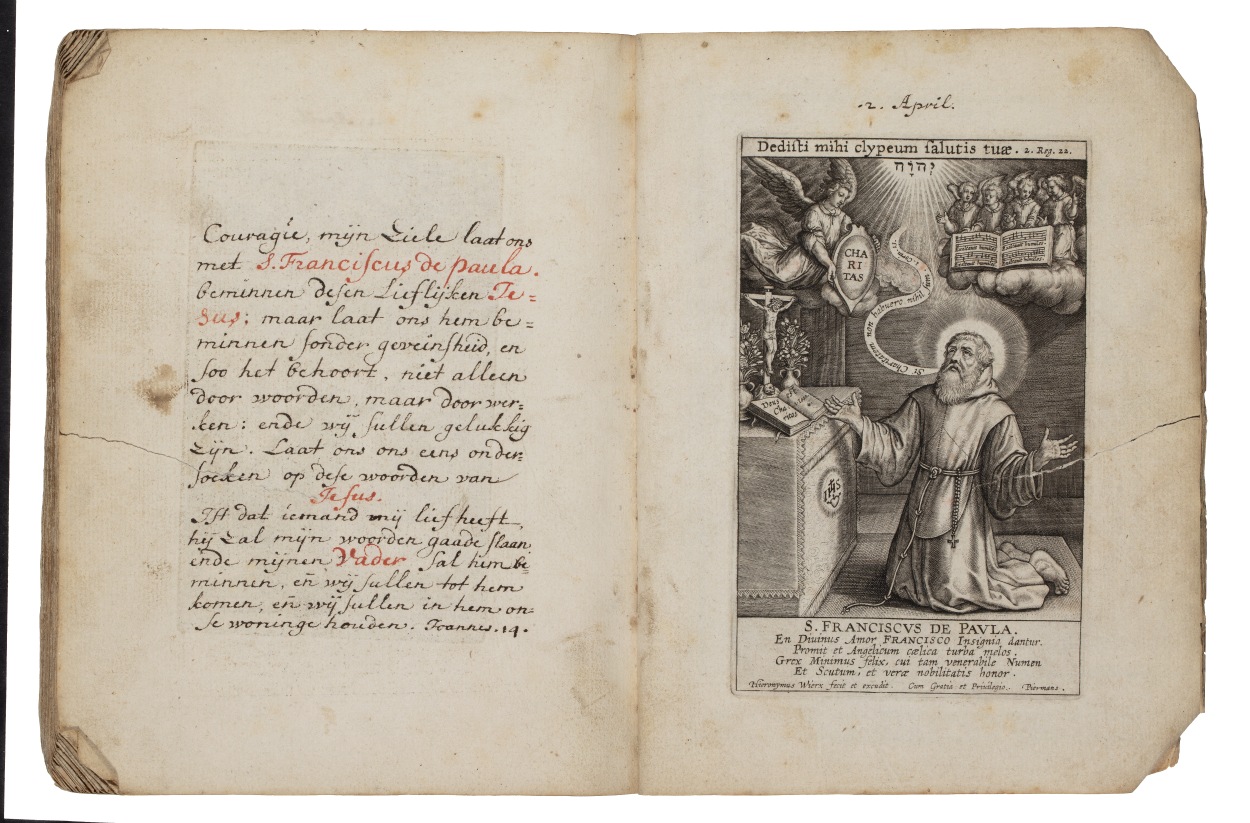 Couragie, mijn Ziele laat ons
met S. Franciscus de paula.
beminnen desen Lieflijken Je=
sus; maar laat ons hem be=
minnen sonder geveinsheid, en
soo het behoort, niet alleen
door woorden, maar door wer=
ken: ende wij sullen gelukkig
Zijn. Laat ons ons eens onder=
soeken op dese woorden van
Jesus.
Ist dat iemand mij lief heeft,
hij zal mijn woorden gaade slaan
ende mijnen Vader sal hem be=
minnen, eñ wij sullen tot hem
komen, eñ wij sullen in hem on=
se woninge houden. Joannes. 14.
2. April.
Dedisti mihi clypeum salutis tuæ. 2. Reg. 22.
יְהֹוָה
CHA
RI
TAS
Exaltavit humiles.
Exaltavit humiles.
Si Charitatem non habuero nihil sum 1. Corin. 13.
Deus
Cha
ritas
IHS
S. FRANCISCVS DE PAVLA.
En Diuinus Amor FRANCISCO Insignia dantur.
Promit et Angelicum cælica turba melos.
Grex Minimus felix, cui tam venerabile Numen
Et Scutum, et veræ nobilitatis honor.
Hieronymus Wierx fecit et excudit. Cum Gratia et Priuilegio. Piermans.